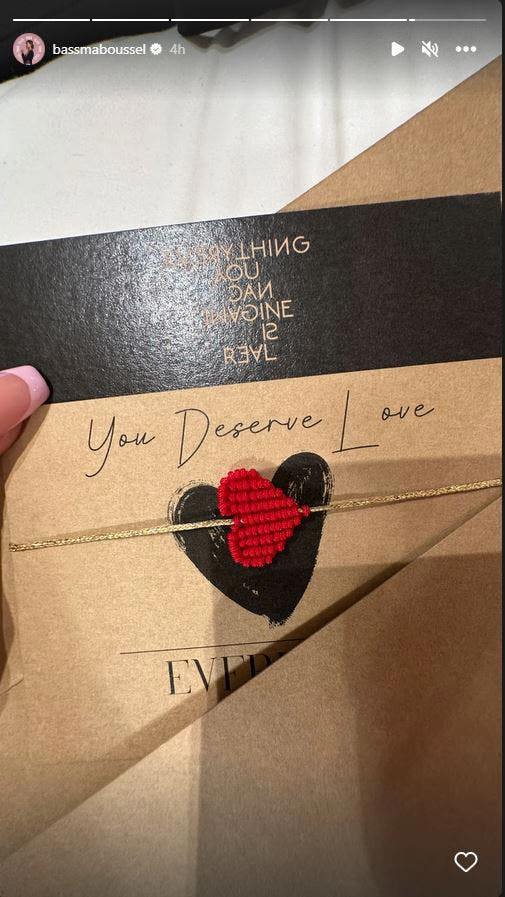 bassmaboussel 4h
EVERYTHING
YOU
CAN
IMAGINE
IS
REAL
You Deserve Love